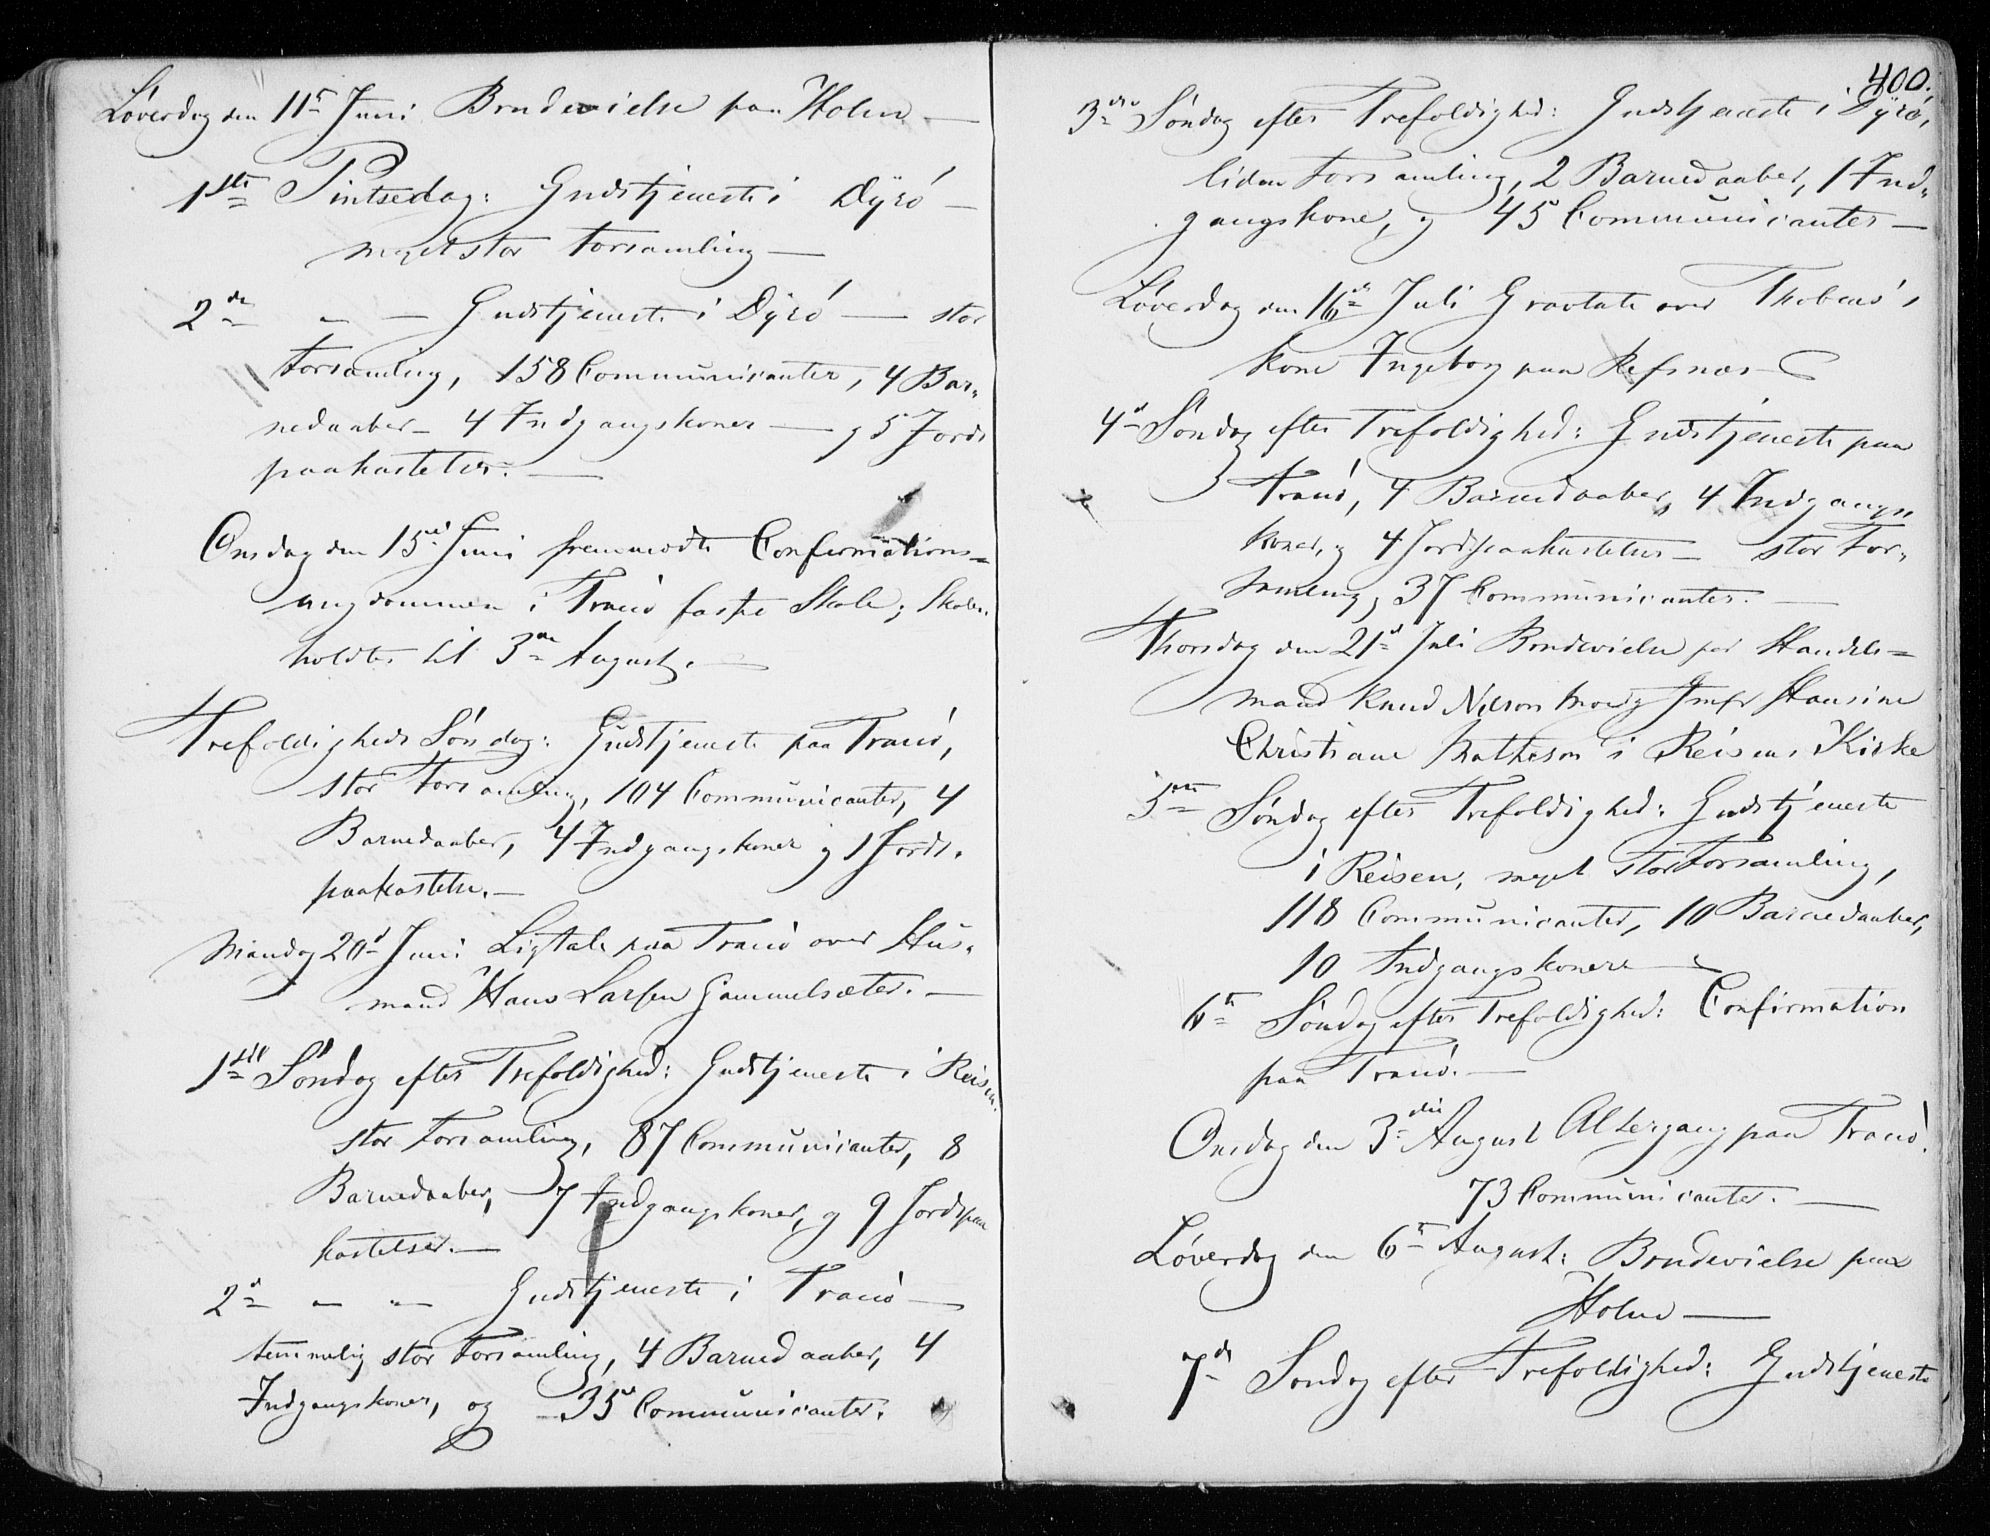 Løverdag den 11t Juni Brudevielse paa Holm —
1ste Pintsedag: Gudstjeneste i Dyrö —
meget stor Forsamling —
2de „ — Gudstjeneste i Dyrö — stor
Forsamling, 158 Communicanter, 4 Bar-
nedaaber — 4 Indgangskoner — og 5 Jords
paakastelser. —
Onsdag den 15de Juni fremmødte Confirmations=
ungdommen i Tranö faste Skole; Skolen
holdtes til 3die August. —
Trefoldigheds Søndag: Gudstjeneste paa Tranö,
stor Forsamling, 104 Communicanter, 4
Barnedaaber, 4 Indgangskoner og 1 Jords-
paakastelse. —
Mandag 20d Juni Ligtale paa Tranö over Hus-
mand Hans Larsen Gammelsæter. —
1ste Søndag efter Trefoldighed: Gudstjeneste i Reisen.
stor Forsamling, 87 Communicanter, 8
Barnedaaber, 7 Indgangskoner, og 9 Jordspaa
kastelser. —
2d „ „ Gudstjeneste i Tranö —
temmelig stor Forsamling, 4 Barnedaaber, 4
Indgangskoner, og 35 Communicanter.
400.
3die Søndag efter Trefoldighed: Gudstjeneste i Dyrö,
liden Forsamling, 2 Barnedaaber, 1 Ind-
gangskone, og 45 Communicanter —
Løverdag den 16d Juli Gravtale over
Kone Ingeborg paa Refsnæs —
4d Søndag efter Trefoldighed: Gudstjeneste paa
Tranö, 4 Barnedaaber, 4 Indgangs
koner, og 4 Jordspaakastelser — stor For-
samling, 37 Communicanter. —
Thorsdag den 21d Juli Brudevielse for Handels=
mand Knud Nilson og Jmfr Hansine
Christiane Matheson i Reisens Kirke
5te Søndag efter Trefoldighed: Gudstjeneste
i Reisen, meget stor Forsamling,
118 Communicanter, 10 Barnedaaber,
10 Indgangskoner —
6t Søndag efter Trefoldighed: Confirmation
paa Tranö. —
Onsdag den 3die August Altergang paa Tranö.
73 Communicanter. —
Løverdag den 6t August: Brudevielse paa
Holm —
7d Søndag efter Trefoldighed: Gudstjeneste